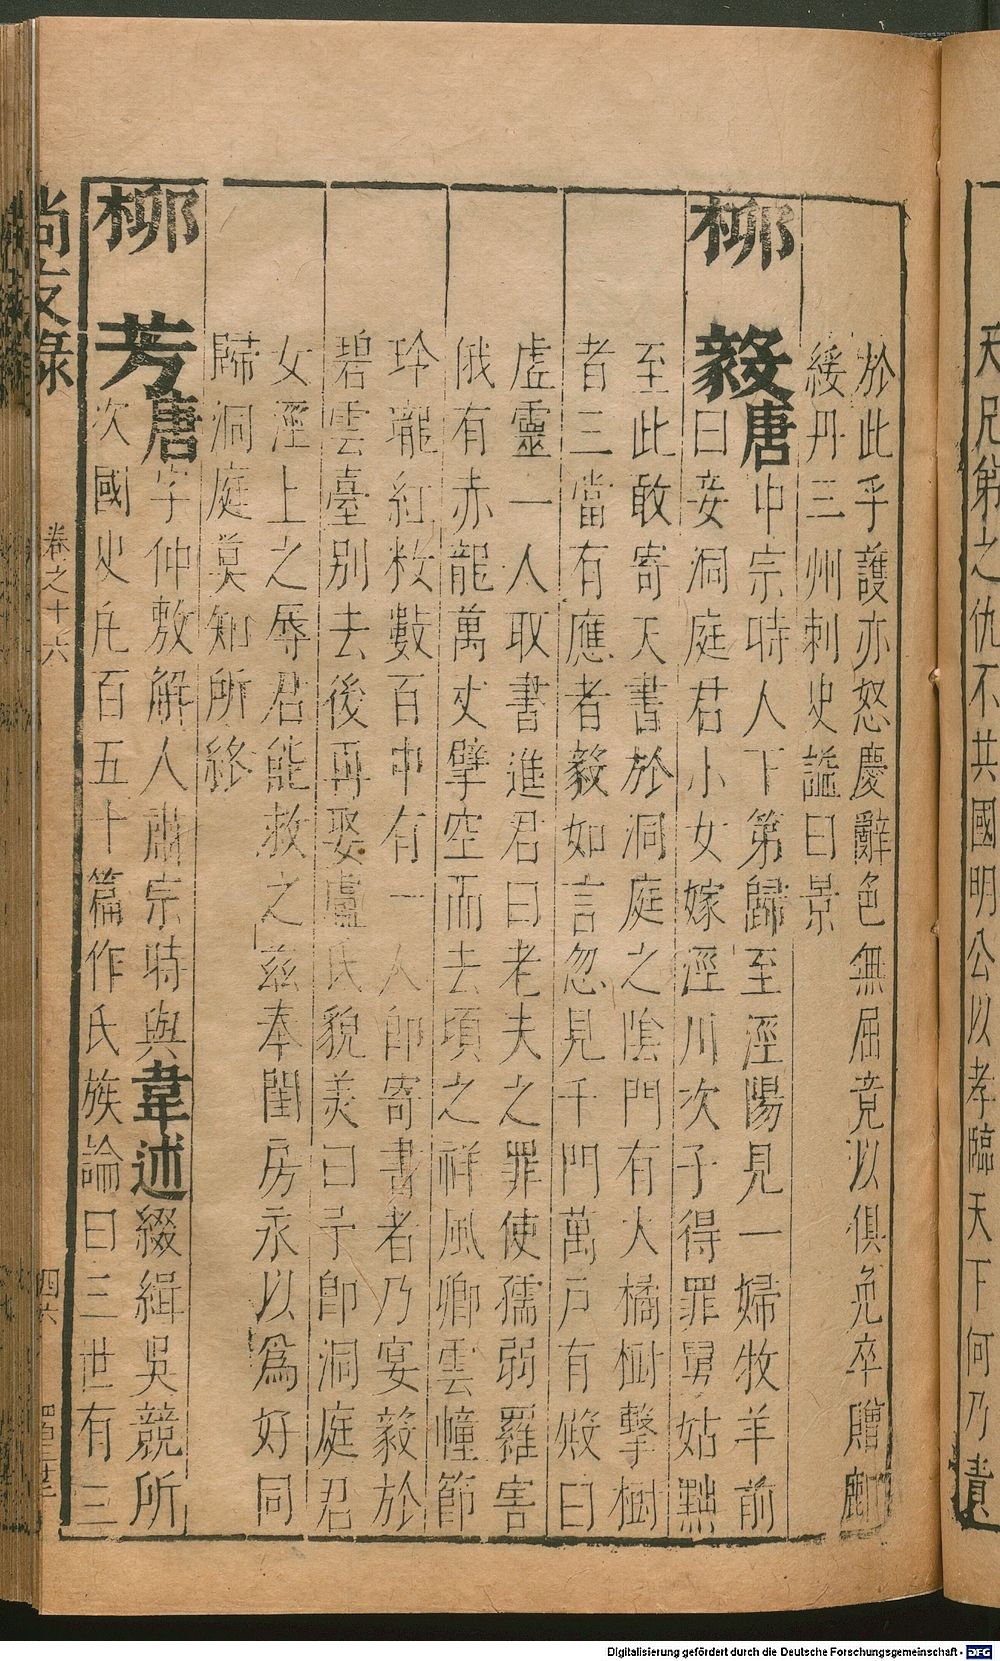 天兄弟之仇不共國明公以孝臨天下何乃責
於此乎護亦怒慶辭色無屈竟以俱免卒贈鄜
綏丹三州刺史諡曰景
柳毅唐中宗時人下第歸至涇陽見一婦牧羊前
曰妾洞庭君小女嫁涇川次子得罪舅姑黜
至此敢寄天書於洞庭之陰門有大橘樹擊樹
者三當有應者毅如言忽見千門萬戸有殿曰
虛靈一人取書進君曰老夫之罪使孺弱羅害
俄有赤龍萬丈擘空而去頃之祥風卿雲幢節
玲瓏紅粧數百中有一人即寄書者乃宴毅於
碧雲臺別去後再娶盧氏貌美曰予即洞庭君
女涇上之辱君能救之茲奉閨房永以為好同
歸洞庭莫知所終
柳芳唐字仲敷解人肅宗時與韋述綴緝吳競所
次國史凡百五十篇作氏族論曰三世有三
尚友錄
卷之十六
四六
Digitalisierung gefördert durch die Deutsche Forschungsgemeinschaft - DFG